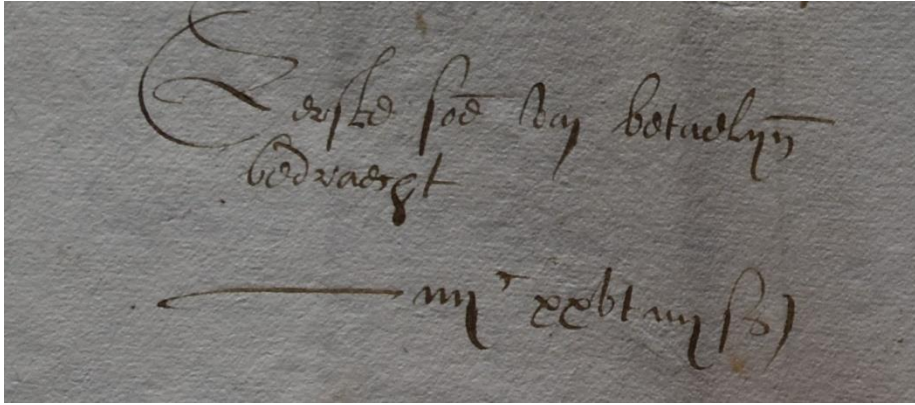 Eerste som̄e van betaelyn̄
bedraecht
iiijᶜ xxvj iiij ß